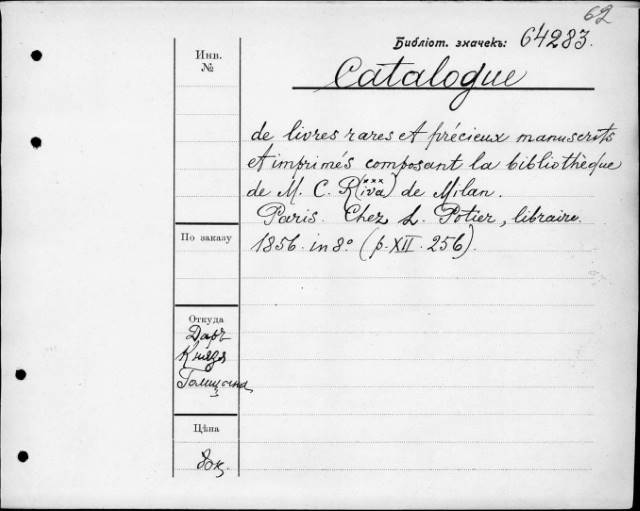 62
Библіот. значекъ: 64283.
Инв.
№
Catalogue
de livres rares et précieux manuscrits
et imprimés composant la bibliothèque
de M. C. R(xxx iva) de Milan.
Paris. Chez L. Potier, libraire.
1856. in 8º (p. XII. 256).
По заказу
Откуда
Даръ
Князя
Голицына
Цѣна